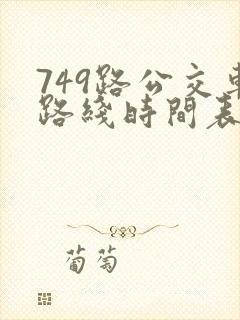 749路公交車
路綫時間表
葡萄